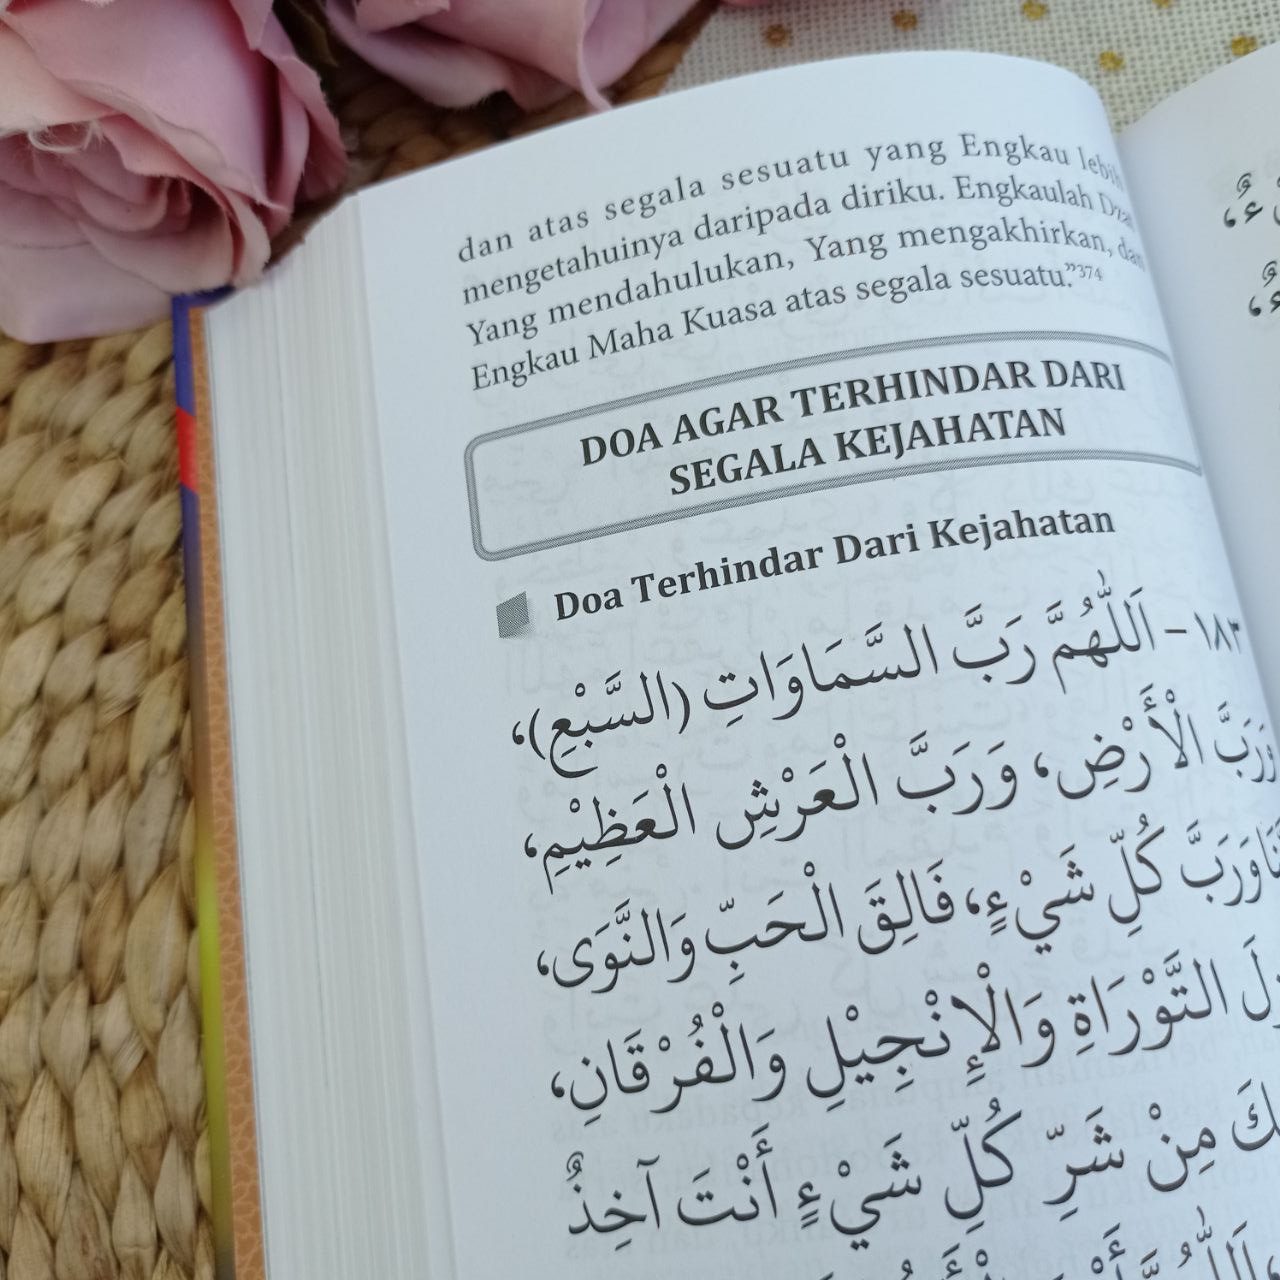 dan atas segala sesuatu yang Engkau lebih
mengetahuinya daripada diriku. Engkaulah
Yang mendahulukan, Yang mengakhirkan,
Engkau Maha Kuasa atas segala sesuatu.”³⁷⁴
DOA AGAR TERHINDAR DARI
SEGALA KEJAHATAN
Doa Terhindar Dari Kejahatan
١٨٣ – اَللّٰهُمَّ رَبَّ السَّمَاوَاتِ (السَّبْعِ)،
وَرَبَّ الْأَرْضِ، وَرَبَّ الْعَرْشِ الْعَظِيْمِ،
وَرَبَّ كُلِّ شَيْءٍ، فَالِقَ الْحَبِّ وَالنَّوَى،
التَّوْرَاةِ وَالْإِنْجِيْلِ وَالْفُرْقَانِ،
مِنْ شَرِّ كُلِّ شَيْءٍ أَنْتَ آخِذٌ